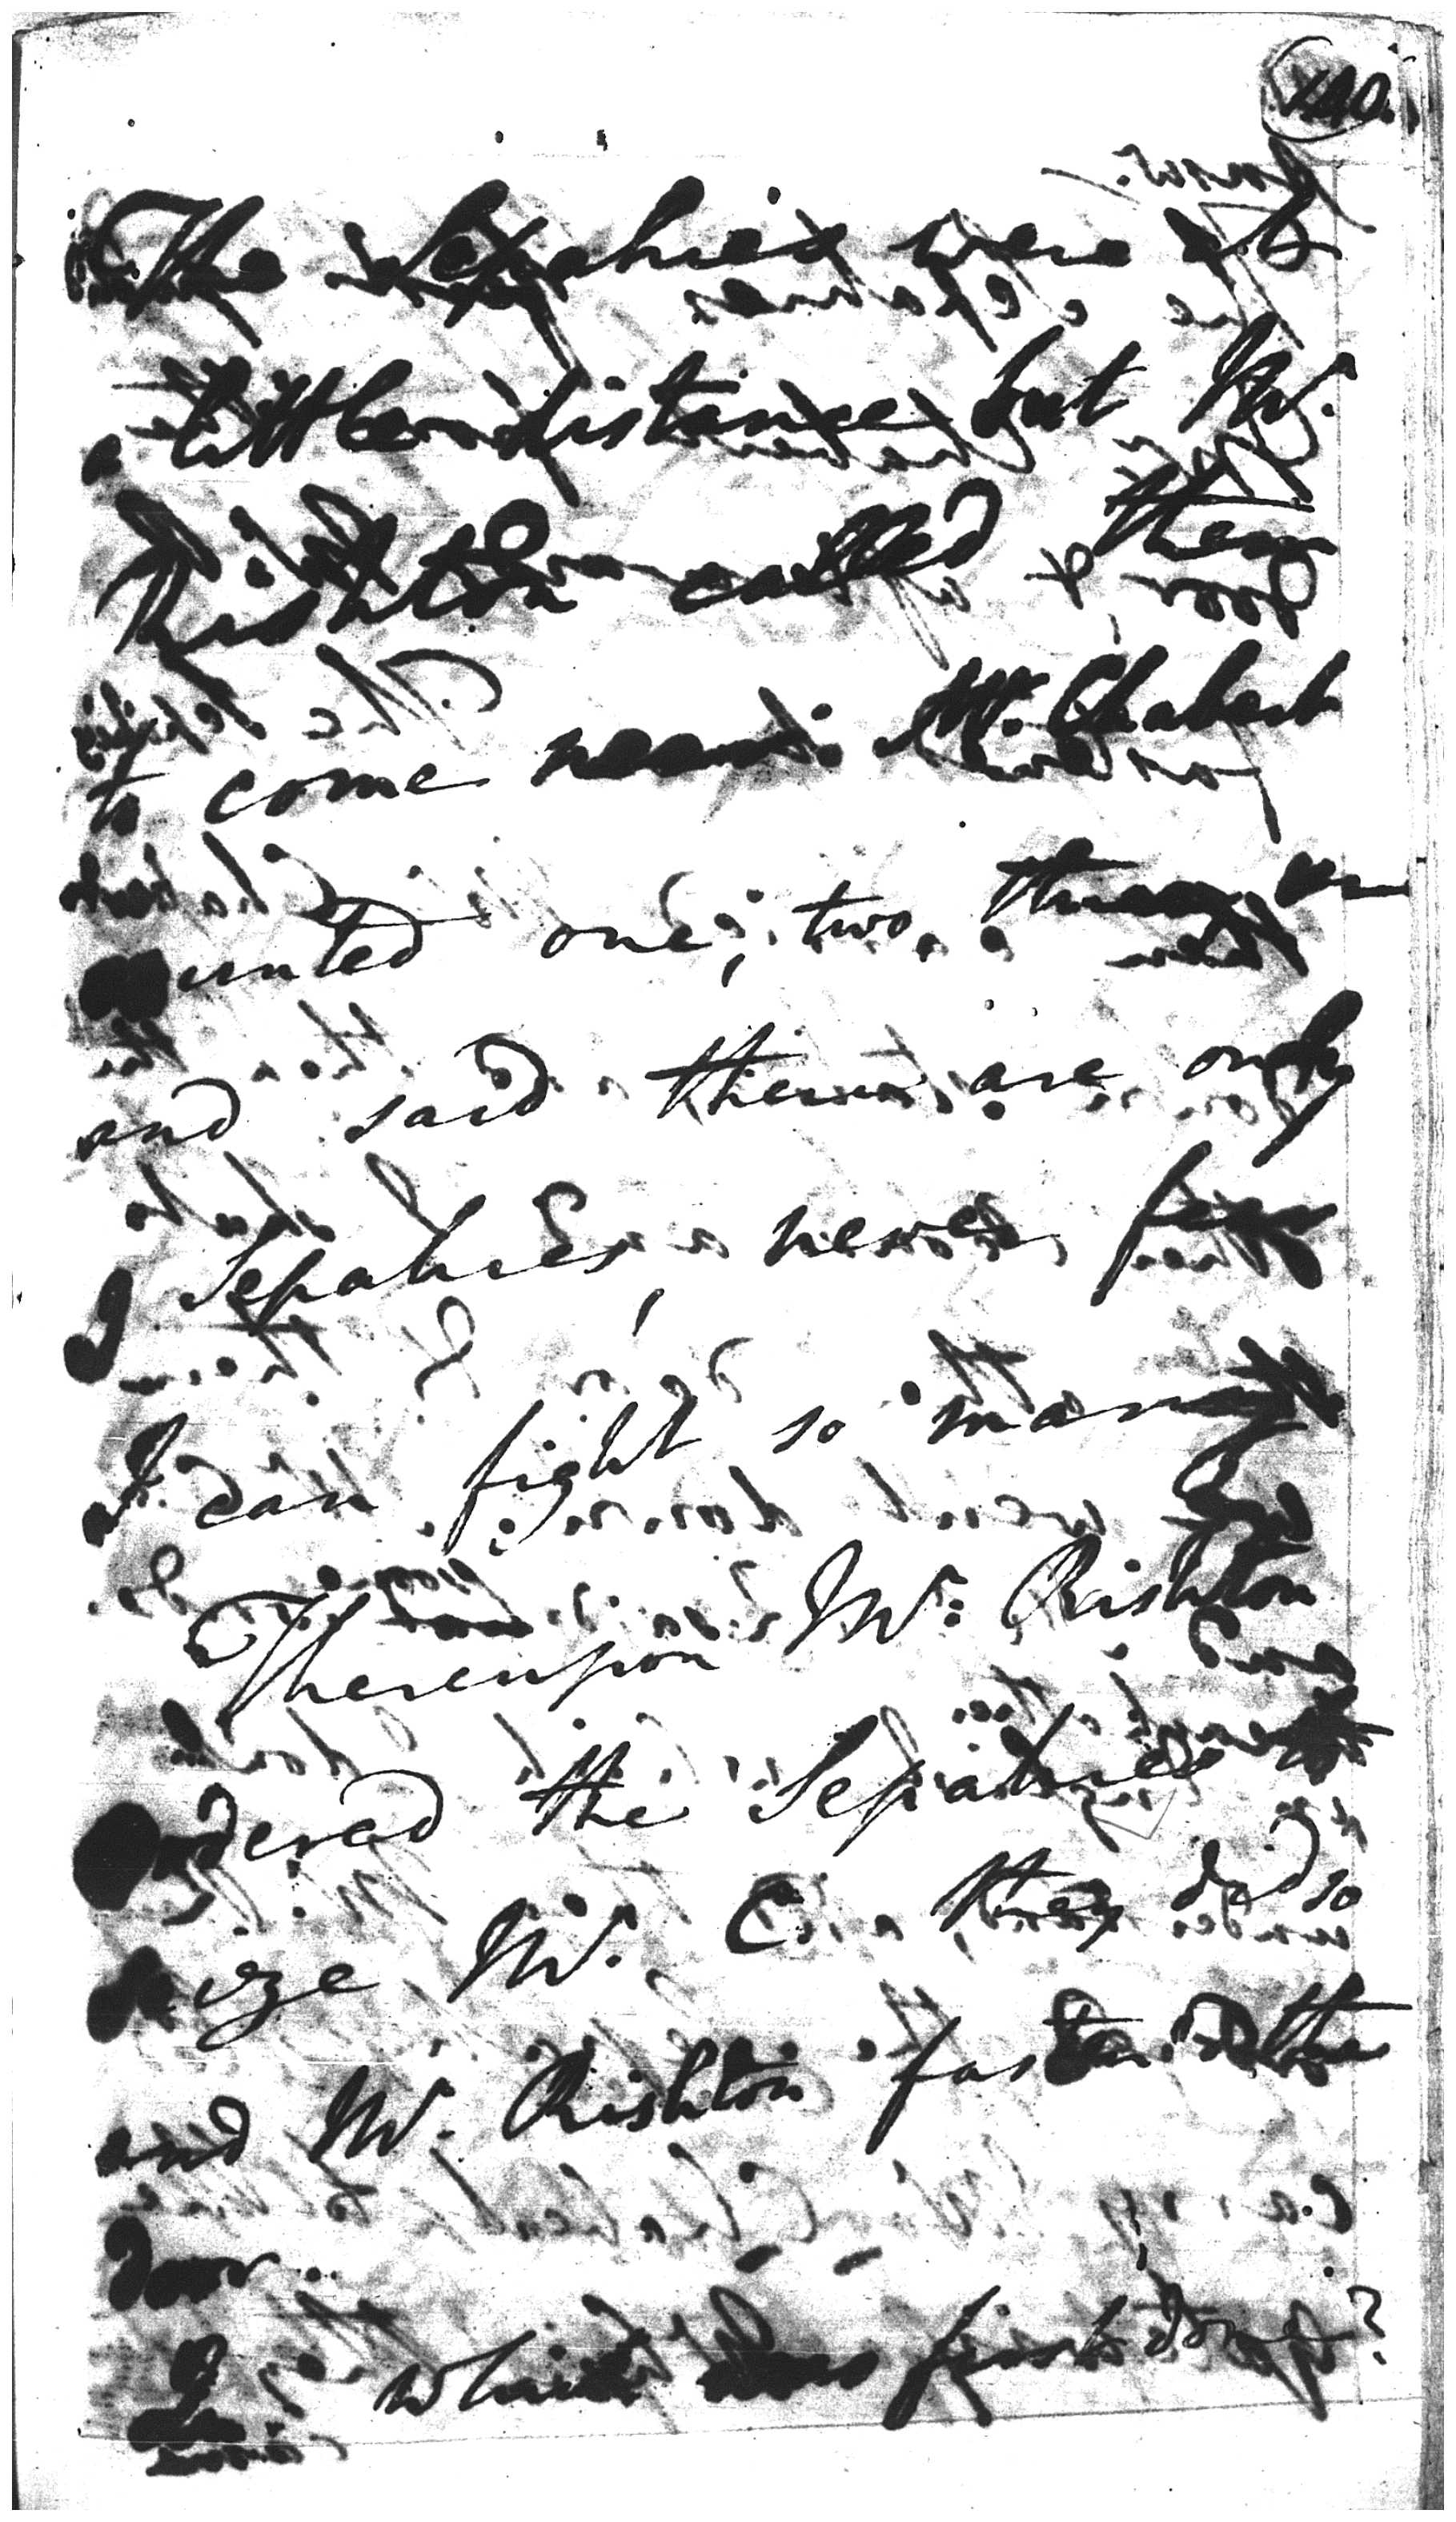 140.
The Sepahies were at
a little distance but Mr.
Rishton called them
to come near: Mr. Chabert
counted one, two, three
and said there are only
Sepahies, never fear
I can fight so many
Thereupon Mr. Rishton
ordered the Sepahies to
seize Mr. C. they did so
and Mr. Rishton fasten'd the
door..
Q which was first done?